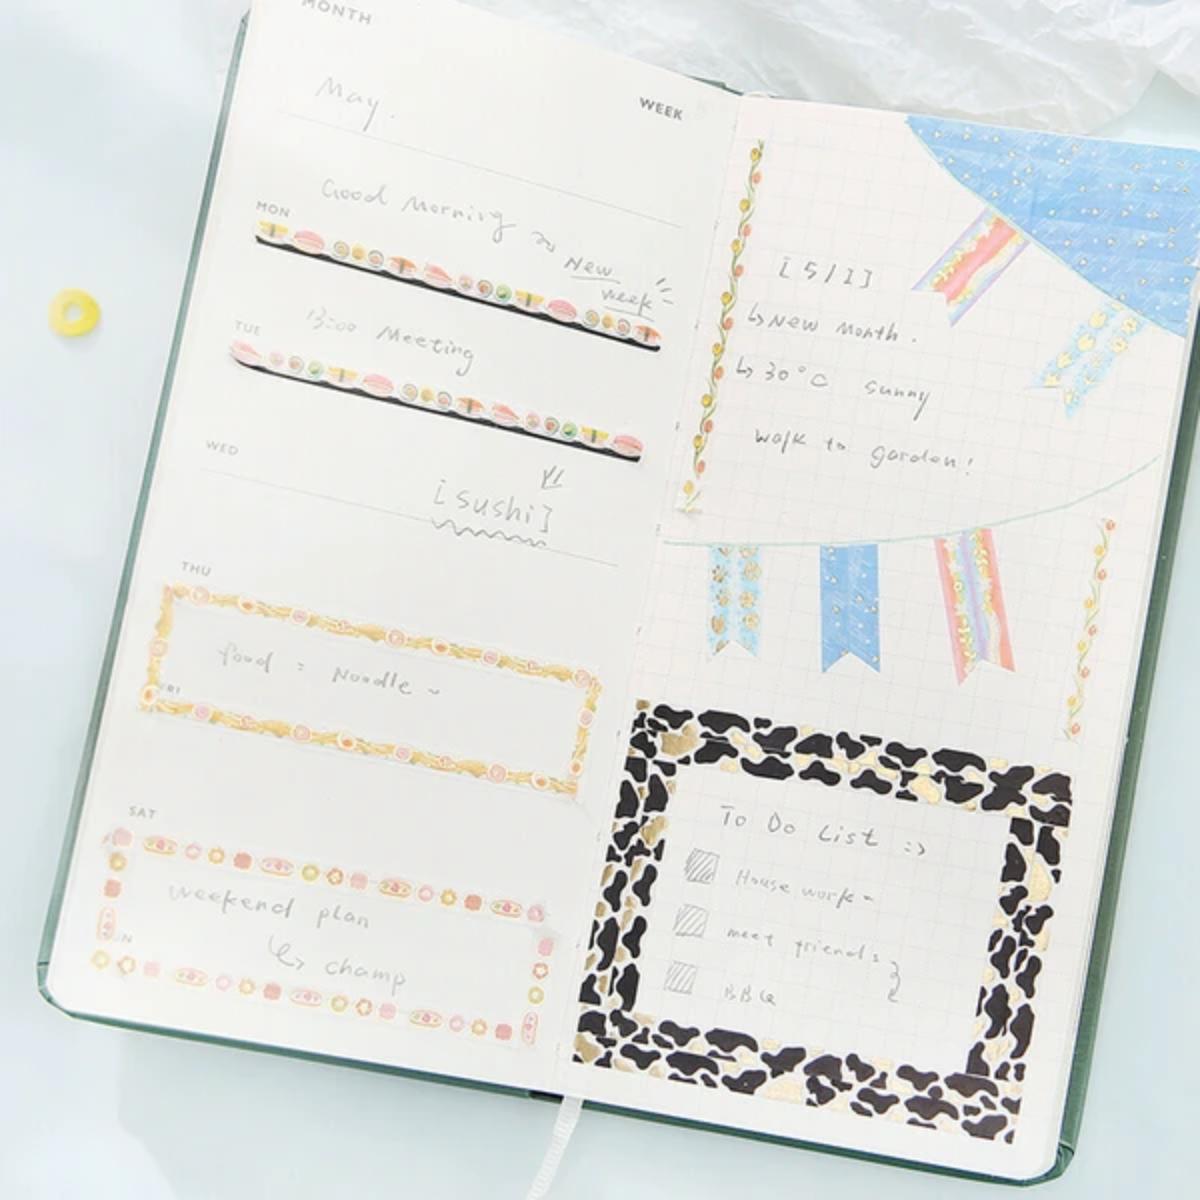 MONTH
May.
WEEK
Good Morning
MON
New
week
TUE
13:00 Meeting
WED
[sushi]
THU
food : Noodle ~
FRI
SAT
weekend plan
↳ champ
[5/1]
↳ New Month.
↳ 30°C sunny
walk to garden!
To Do List :)
House work~
meet friends
BBQ